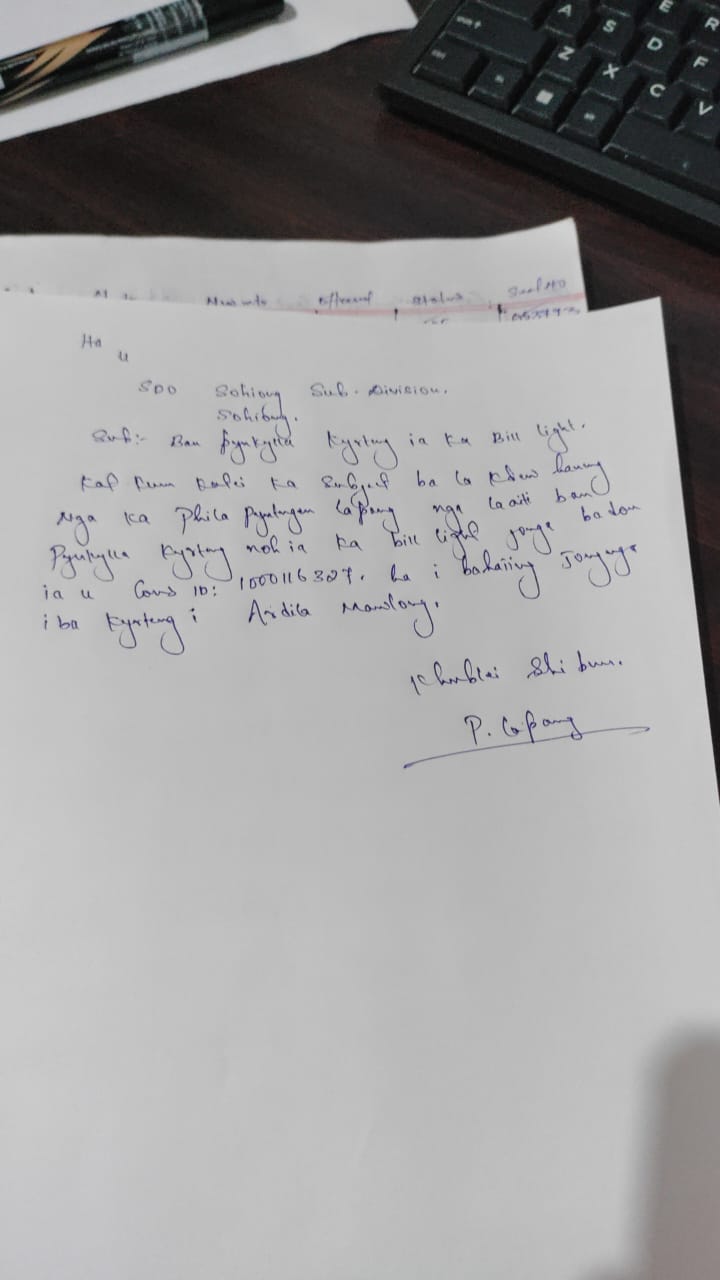 A
S
E
R
Z
X
D
F
C
V
Status
Ha
u
SDO Sohiong Sub-Division.
Sohiong.
Sub:- Ban pynkylla kyrteng ia ka Bill light.
Kat kum kata ka Subject ba la kdew haneng
Nga ka Phila Pyngrope Lapang nga la aiti ban
Pynkylla kyrteng noh ia ka bill light jong nga ba don
ia u Cons ID: 1000116327. ha i bahaiing jong nga
i ba kyrteng i Ardila Mawlong.
Khublei Shibun.
P. Lapang